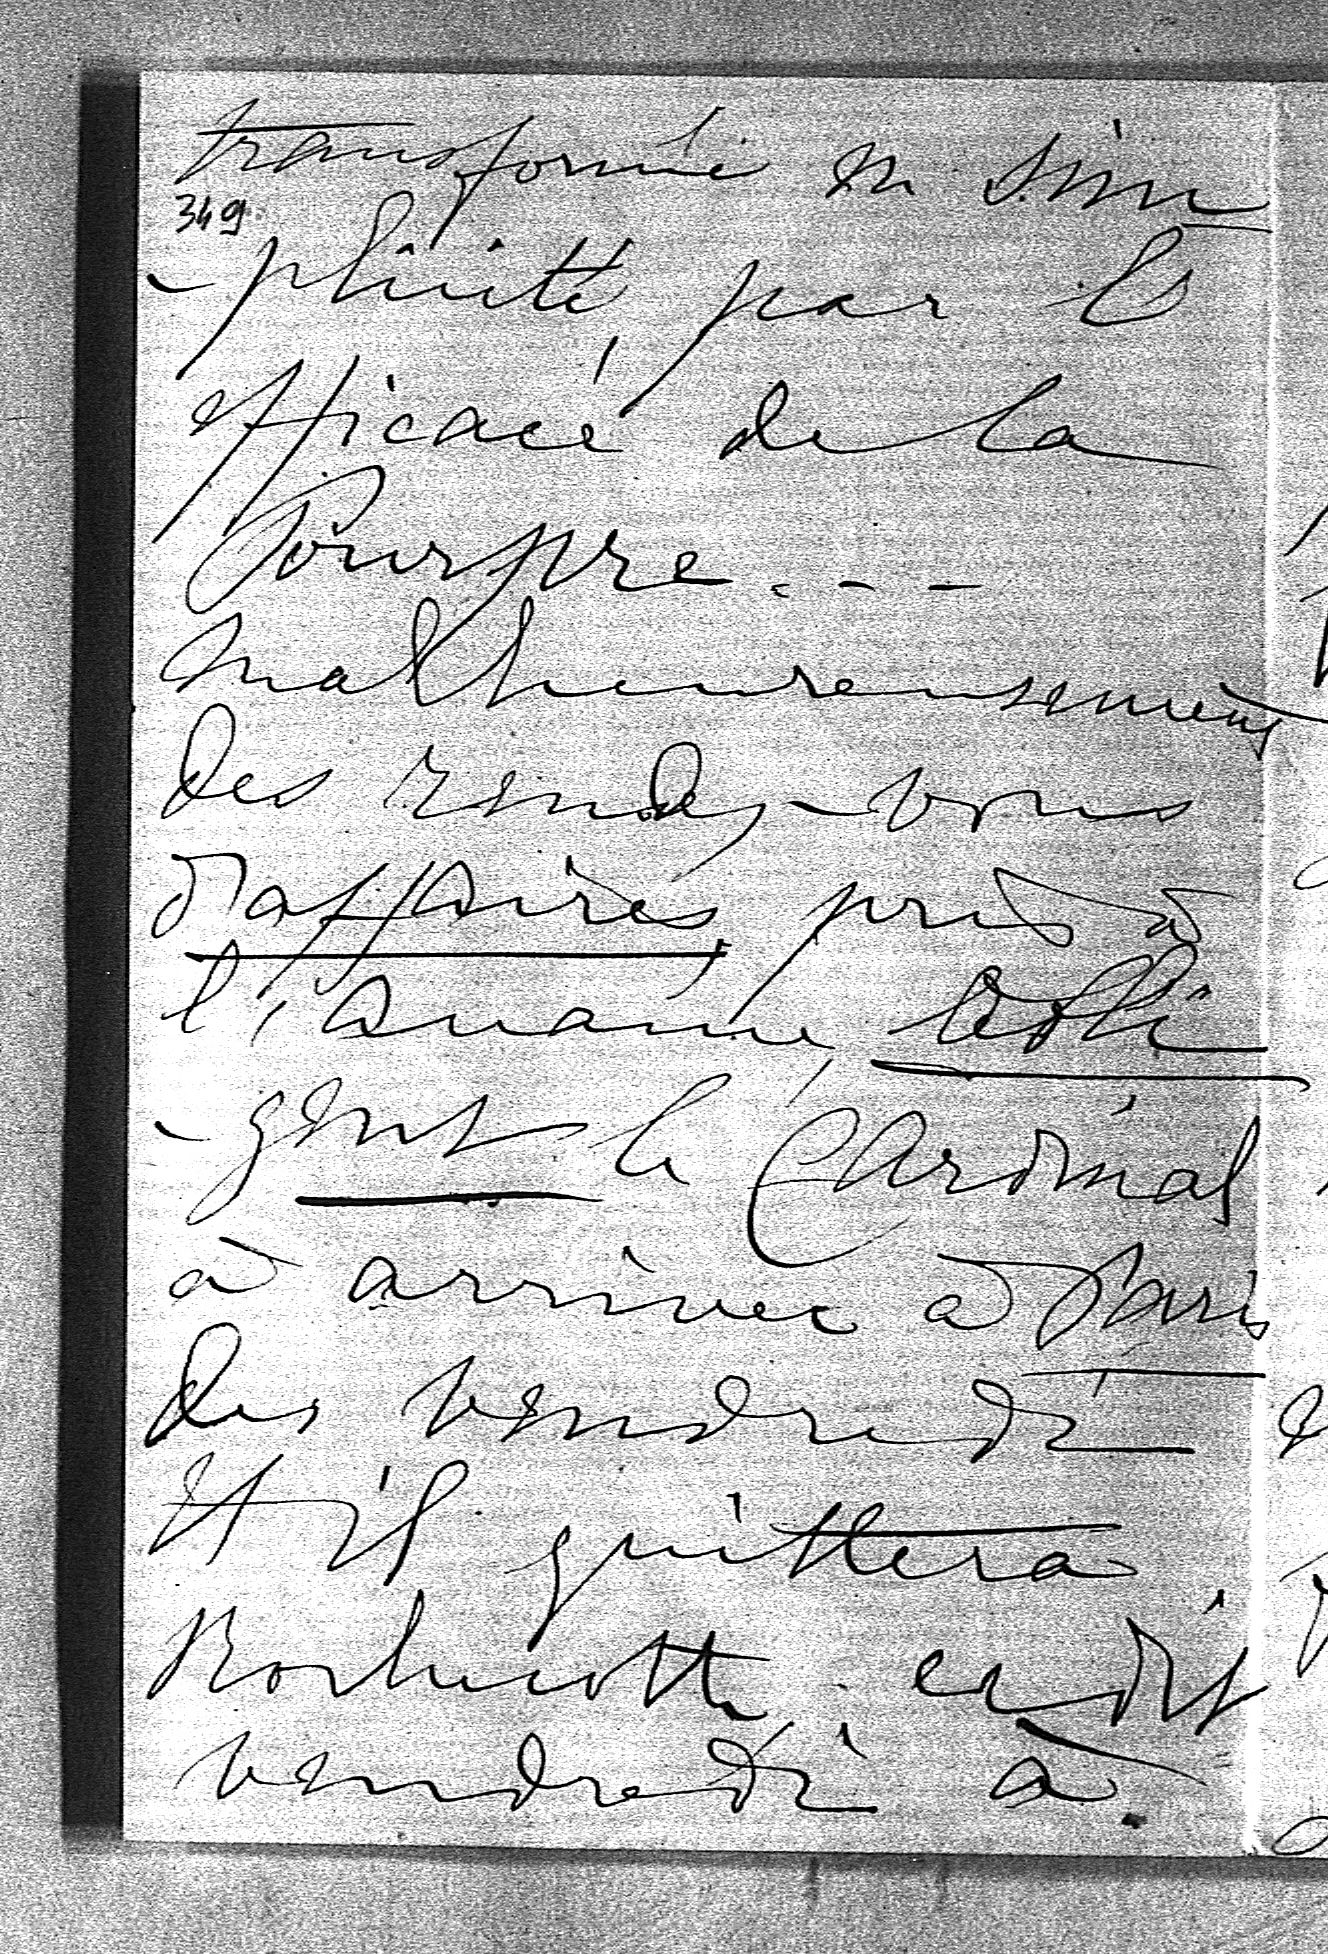 transformée en sim
349.
-plicité, par les
efficacé de la
Pourpre....
malheureusement
des rendez-vous
d'affaires, pris à
l'avance, obli
-gent le Cardinal
à arriver à Paris
dès vendredi
et il quittera
Rochecotte ce dit
vendredi à.